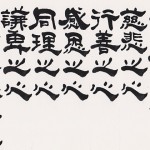 慈悲之心
行善之心
感恩之心
同理之心
謙卑之心